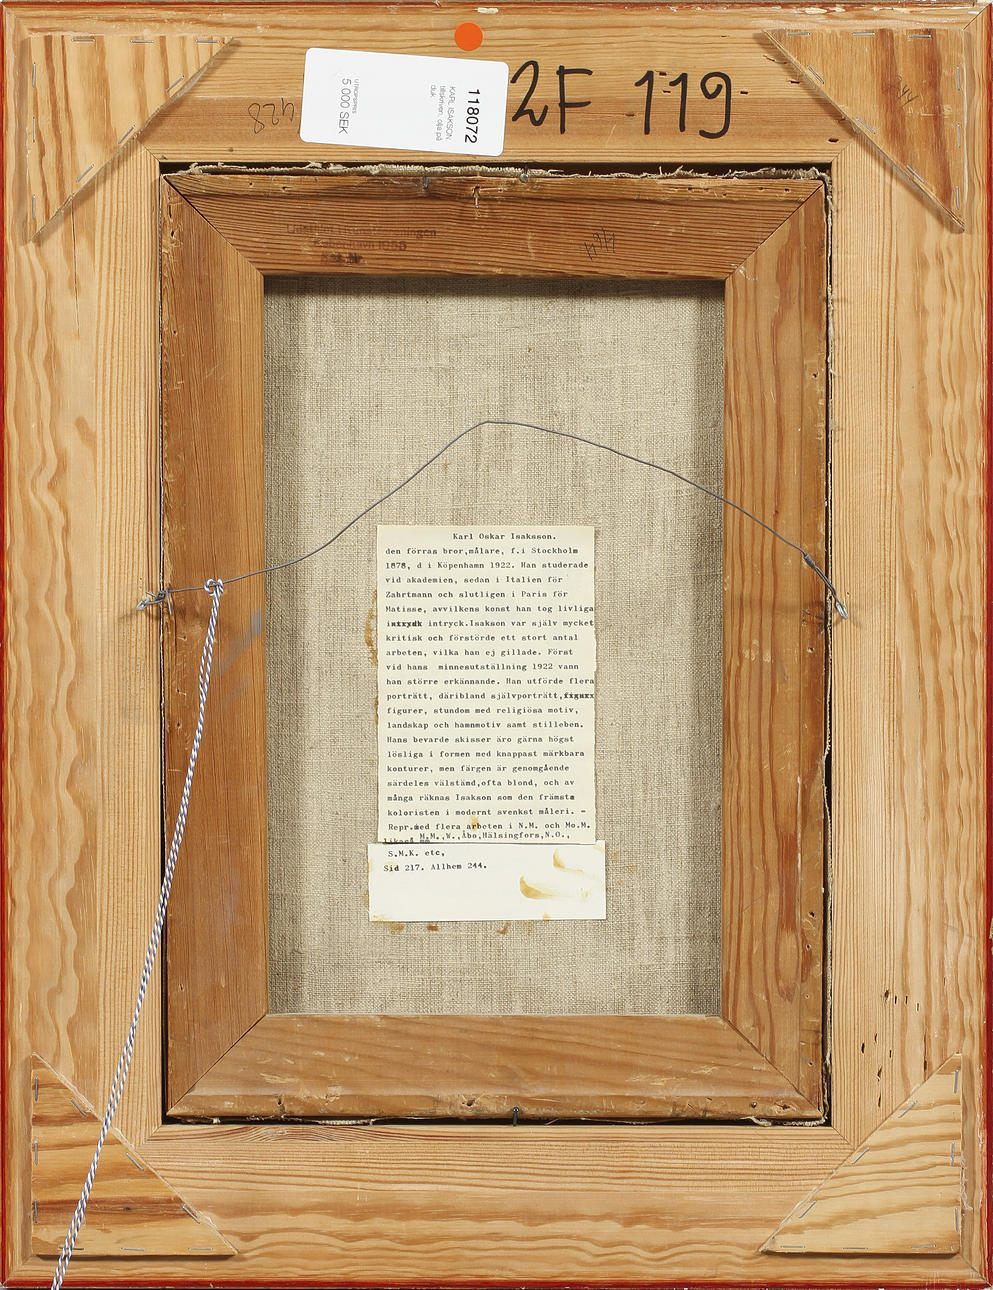 2F 119
118072
KARL ISAKSON.
tillskriven. olja på
duk
UTROPSPRIS
5 000 SEK
428
464
København 1958
Karl Oskar Isaksson.
den förras bror,målare, f.i Stockholm
1878, d i Köpenhamn 1922. Han studerade
vid akademien, sedan i Italien för
Zahrtmann och slutligen i Paris för
Matisse, avvilkens konst han tog livliga
intryck.Isakson var själv mycket
kritisk och förstörde ett stort antal
arbeten, vilka han ej gillade. Först
vid hans minnesutställning 1922 vann
han större erkännande. Han utförde flera
porträtt, däribland självporträtt,
figurer, stundom med religiösa motiv,
landskap och hamnmotiv samt stilleben.
Hans bevarde skisser äro gärna högst
lösliga i formen med knappast märkbara
konturer, men färgen är genomgående
särdeles välstämd,ofta blond, och av
många räknas Isakson som den främsta
koloristen i modernt svenkst måleri. -
Repr.med flera arbeten i N.M. och Mo.M.
M.M.,W.,Åbo,Hälsingfors,N.O.,
S.M.K. etc,
Sid 217. Allhem 244.